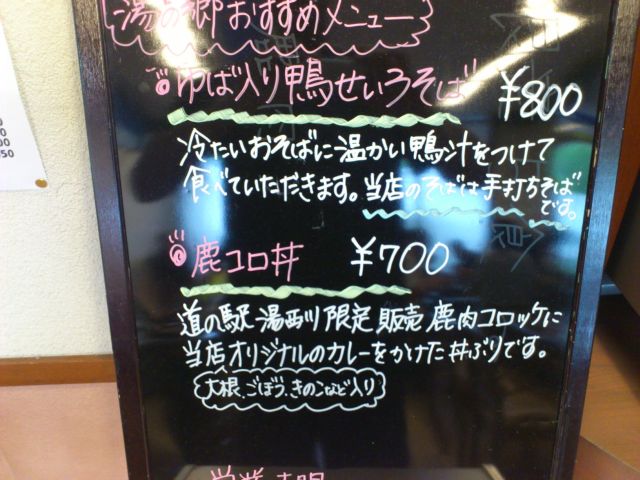 湯の郷おすすめメニュー
ゆば入り鴨せいろそば ¥800
冷たいおそばに温かい鴨汁をつけて
食べていただきます。当店のそばは手打ちそば
です。
鹿コロ丼 ¥700
道の駅湯西川限定販売鹿肉コロッケに
当店オリジナルのカレーをかけた丼ぶりです。
大根、ごぼう、きのこなど入り